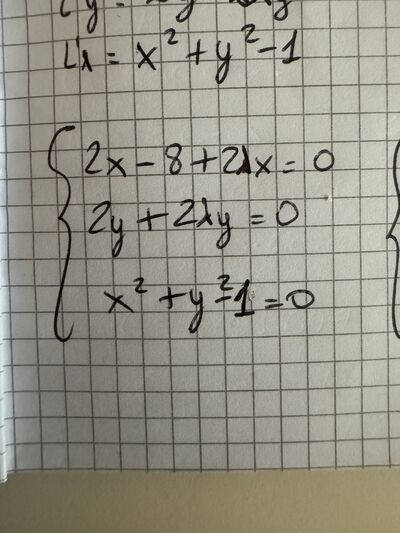 L'λ = x² + y² - 1
2x - 8 + 2λx = 0
2y + 2λy = 0
x² + y² - 1 = 0